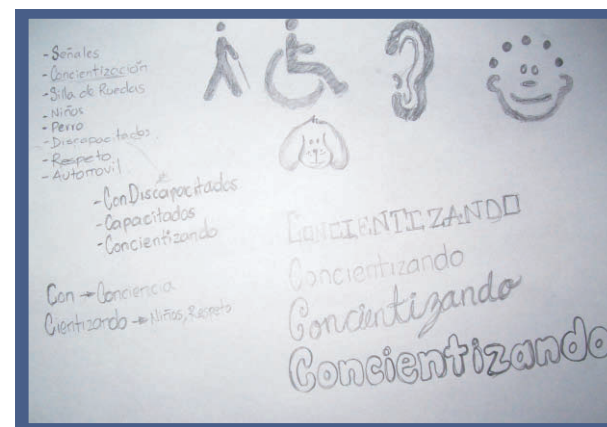 - Señales
- Concientización
- Silla de Ruedas
- Niños
- Perro
- Discapacitados
- Respeto
- Automovil
- ConDiscapacitados
- Capacitados
- Concientizando
Con → Conciencia
Cientizando → Niños, Respeto
CONCIENTIZANDO
Concientizando
Concientizando
Concientizando